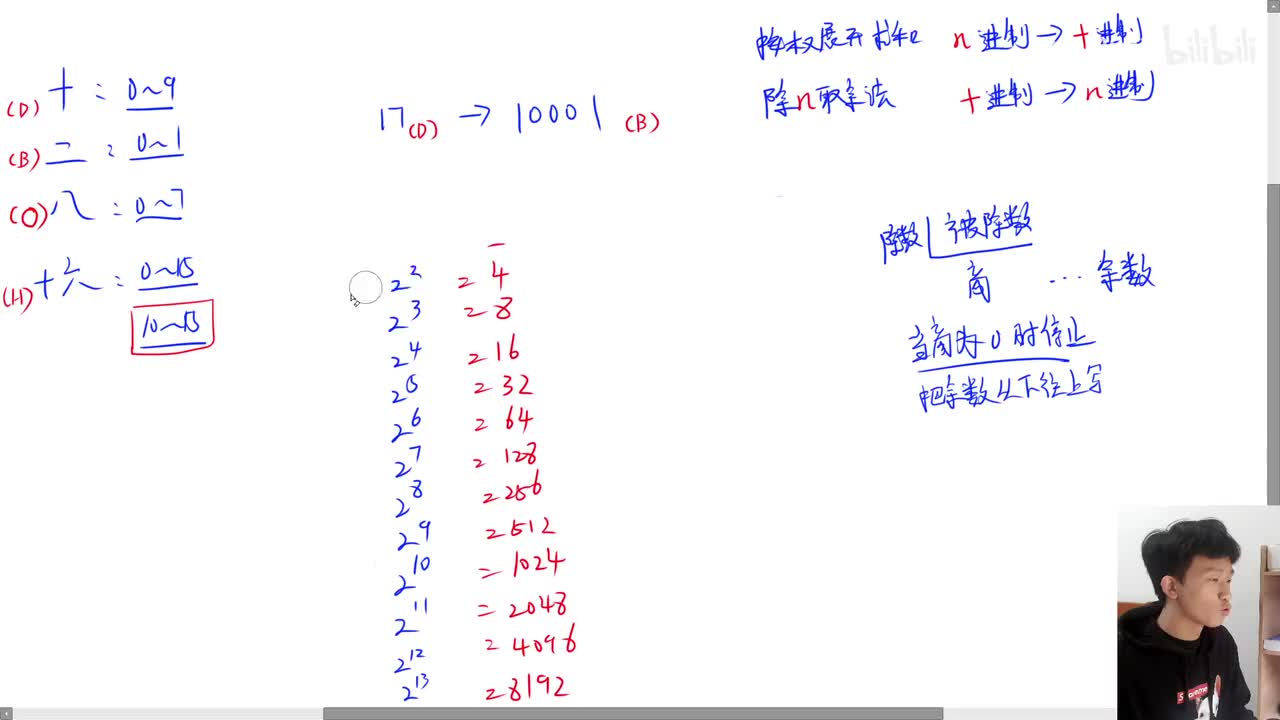 (D) 十 : 0~9
(B) 二 : 0~1
(O) 八 : 0~7
(H) 十六 : 0~15
10~15
17(D) → 10001 (B)
2² = 4
2³ = 8
2⁴ = 16
2⁵ = 32
2⁶ = 64
2⁷ = 128
2⁸ = 256
2⁹ = 512
2¹⁰ = 1024
2¹¹ = 2048
2¹² = 4096
2¹³ = 8192
按权展开求和 n进制→十进制
除n取余法 十进制→n进制
除数 被除数
商 … 余数
当商为0时停止
把余数从下往上写
bilibili
Supreme